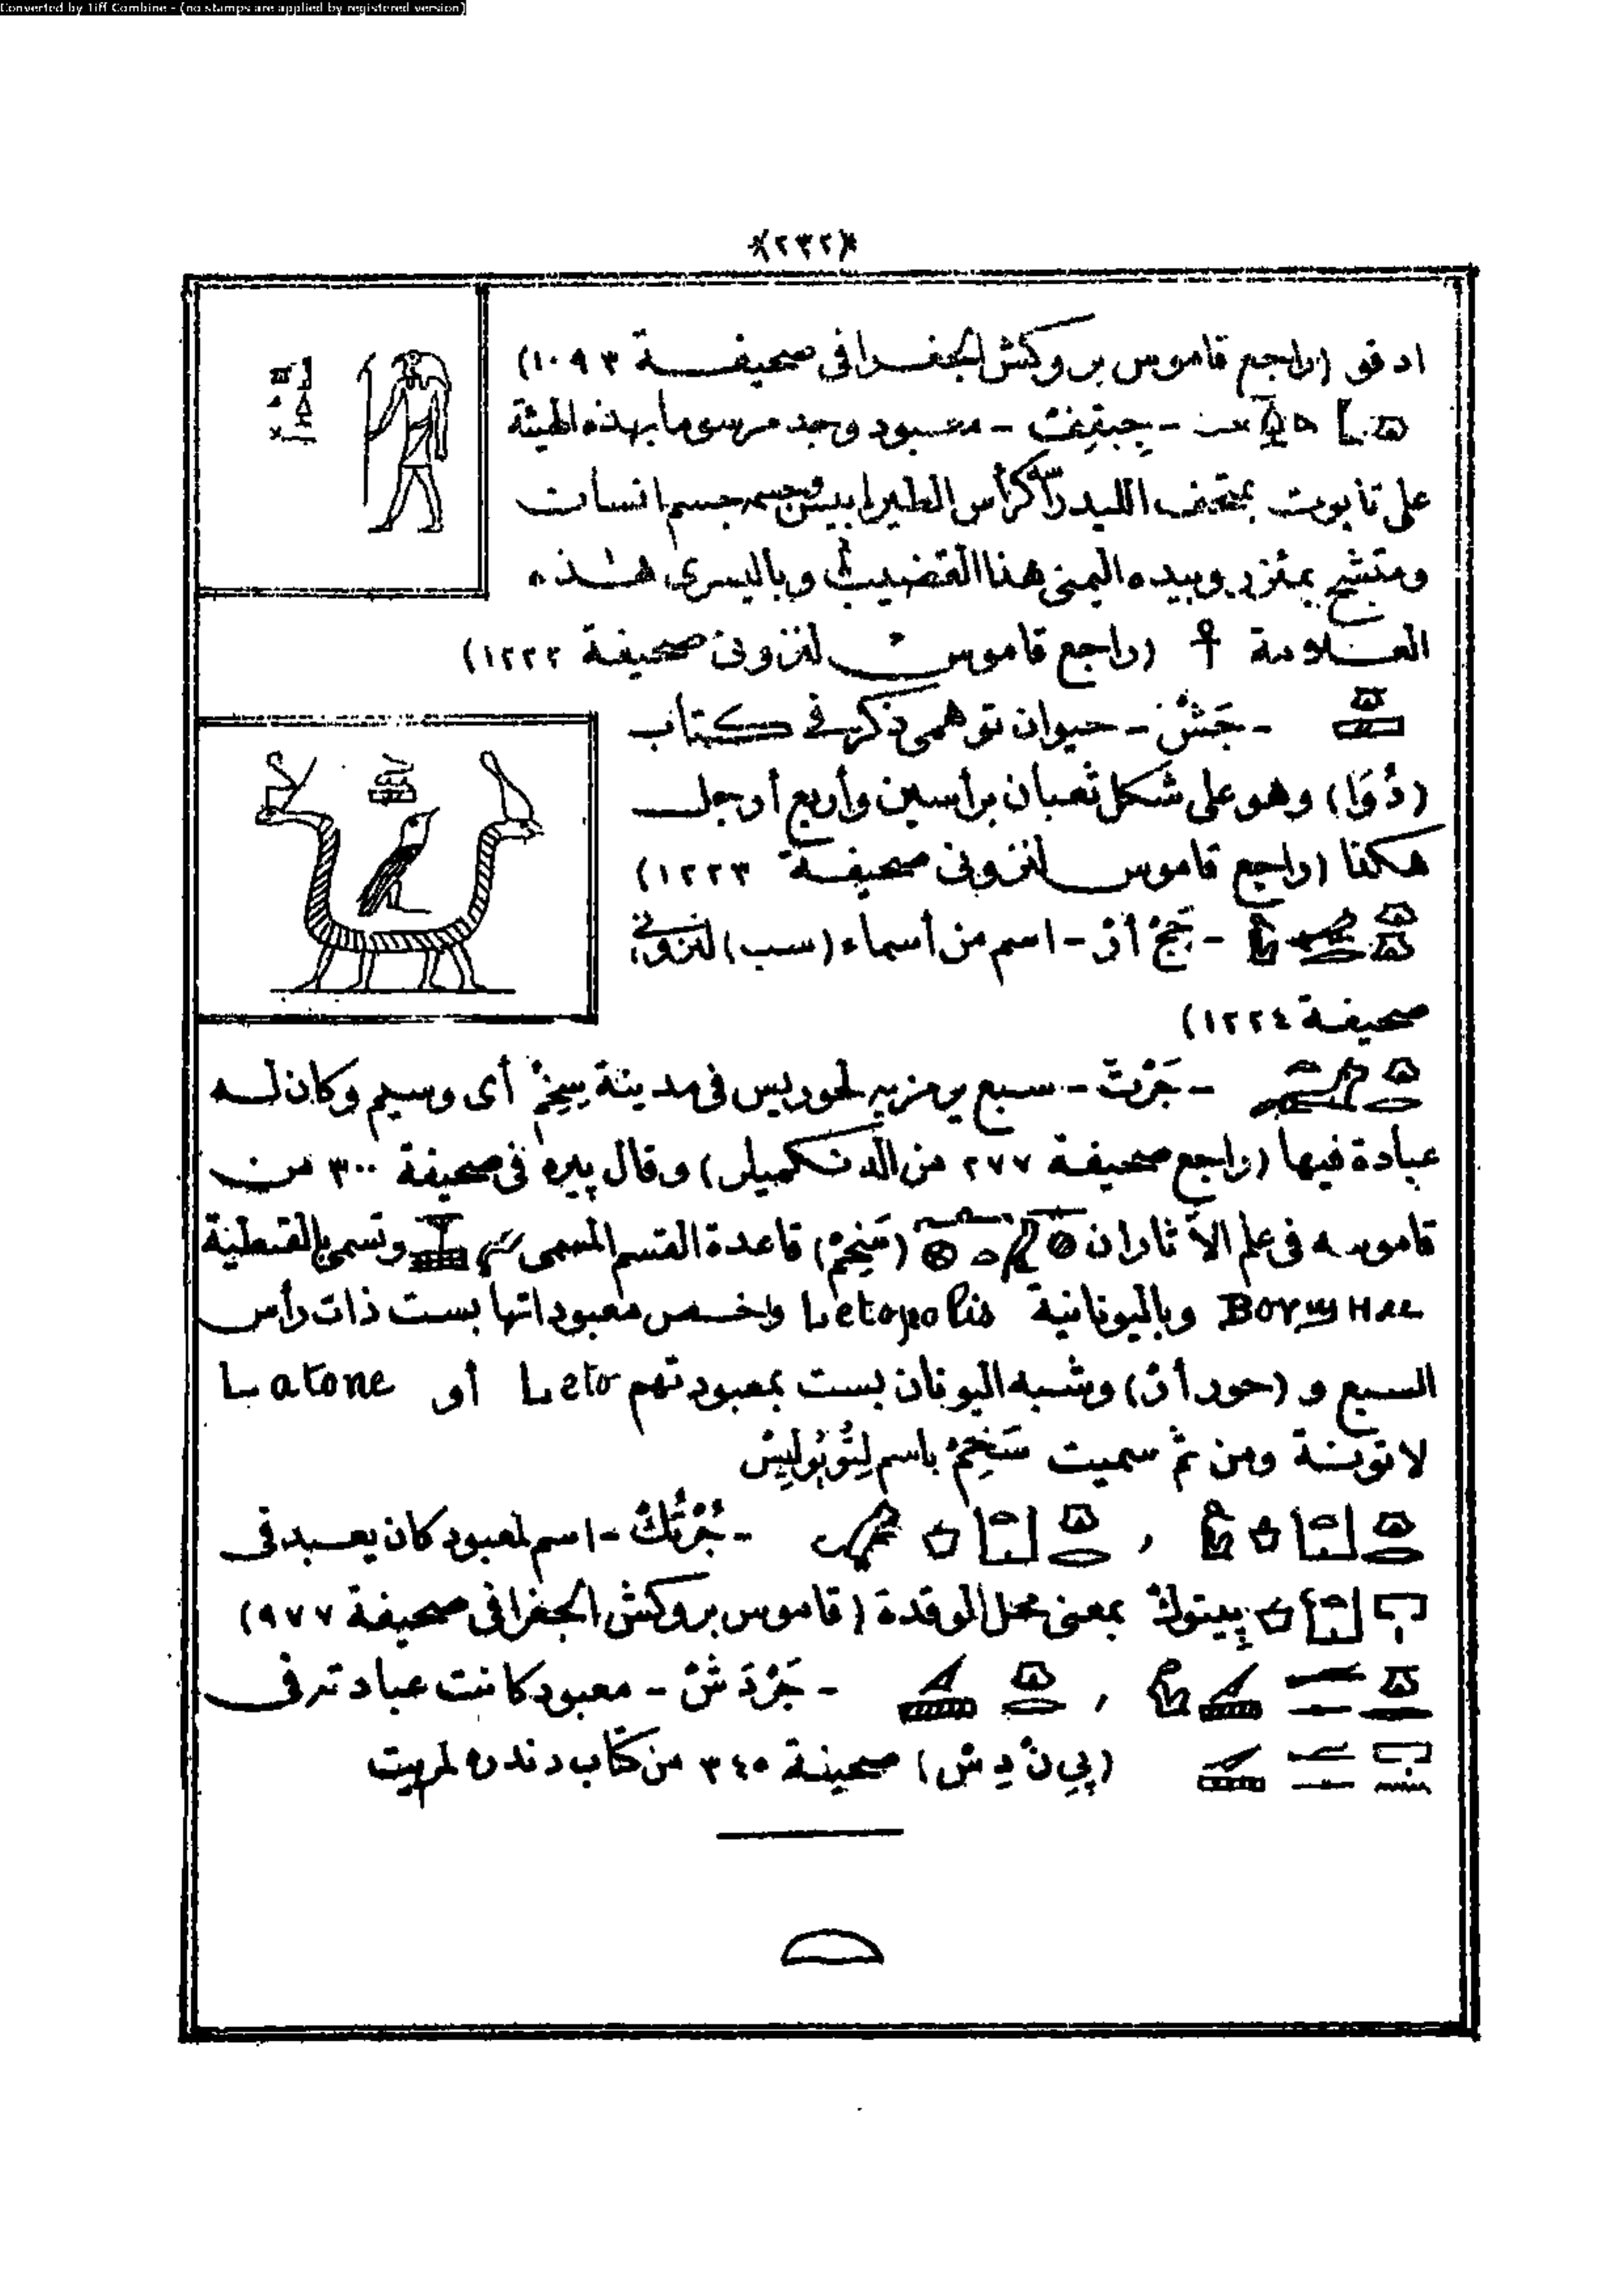 Converted by Tiff Combine - (no stamps are applied by registered version)
﴿٢٣٢﴾
ادفو (راجع قاموس بروكش الجغرافى صحيفة ١٠٩٣)
- جبقفت - معبود وجد مرسوما بهذه الهيئة
على تابوت بمتحف الليد رأسه كرأس الطير ابيس وجسمه جسم انسان
ومتشح بمئزر وبيده اليمنى هذا القضيب وباليسرى هذه
العلامة ☥ (راجع قاموس لنزونى صحيفة ١٢٢٢)
- جَشْ - حيوان توهمى ذكر فى كتاب
(دُوَا) وهو على شكل ثعبان برأسين وأربع أرجل
هكذا (راجع قاموس لنزونى صحيفة ١٢٢٣)
- اسم من أسماء (سب) لنزونى
صحيفة ١٢٢٤)
- جَرْت - سبع يرمز به لحوريس فى مدينة سِخِمْ أى وسيم وكان له
عبادة فيها (راجع صحيفة ٢٧٧ من التكميلى) وقال پيره فى صحيفة ٣٠٠ من
قاموسه فى علم الآثار ان (سَخِمْ) قاعدة القسم المسمى وتسمى بالقبطية
وباليونانية Letopolis واخص معبوداتها بست ذات رأس
السبع و (حور أر) وشبه اليونان بست بمعبودتهم Leto أو Latone
لاتونة ومن ثم سميت سَخِمْ باسم لِتُوپُولِيسْ
، - جُرْتُكْ - اسم لمعبود كان يعبد فى
پيتوك بمعنى محل الوقدة (قاموس بروكش الجغرافى صحيفة ٩٧٧)
، - جَرْدَشْ - معبود كانت عبادته فى
(پى نْ دِش) صحيفة ٣٤٥ من كتاب دندره لمريت